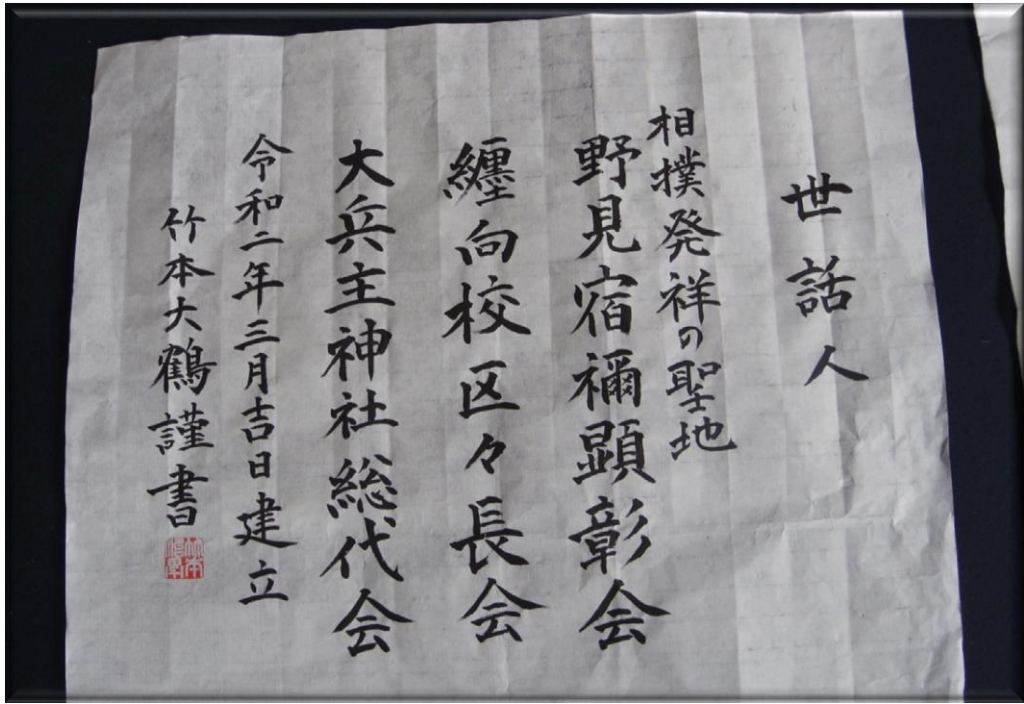 世話人
相撲発祥の聖地
野見宿禰顕彰会
纏向校区々長会
大兵主神社総代会
令和二年三月吉日建立
竹本大鶴謹書